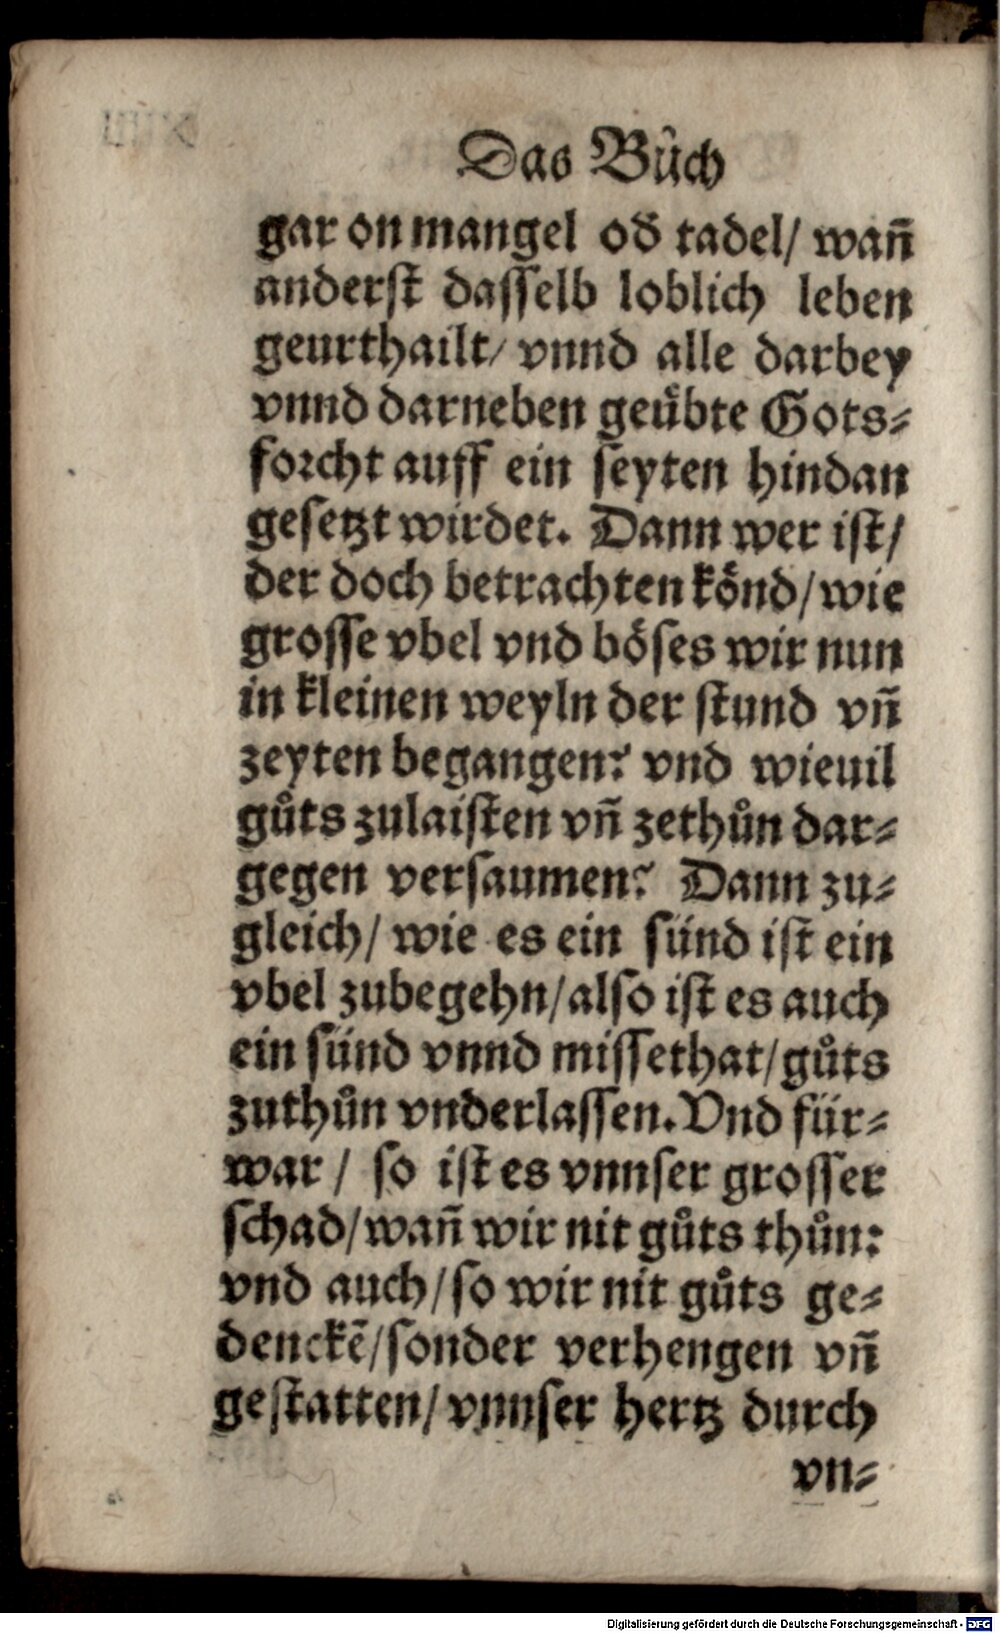 Das Bůch
gar on mangel od̄ tadel/ wañ
anderst dasselb loblich leben
geurthailt/ vnnd alle darbey
vnnd darneben geübte Gots⸗
forcht auff ein seyten hindan
gesetzt wirdet. Dann wer ist/
der doch betrachten könd/ wie
grosse vbel vnd böses wir nun
in kleinen weyln der stund vñ
zeyten begangen? vnd wieuil
gůts zulaisten vñ zethůn dar⸗
gegen versaumen? Dann zu⸗
gleich/ wie es ein sünd ist ein
vbel zubegehn/ also ist es auch
ein sünd vnnd missethat/ gůts
zuthůn vnderlassen. Vnd für⸗
war/ so ist es vnnser grosser
schad/ wañ wir nit gůts thůn:
vnd auch/ so wir nit gůts ge⸗
denckē/ sonder verhengen vñ
gestatten/ vnnser hertz durch
vn⸗
Digitalisierung gefördert durch die Deutsche Forschungsgemeinschaft - DFG